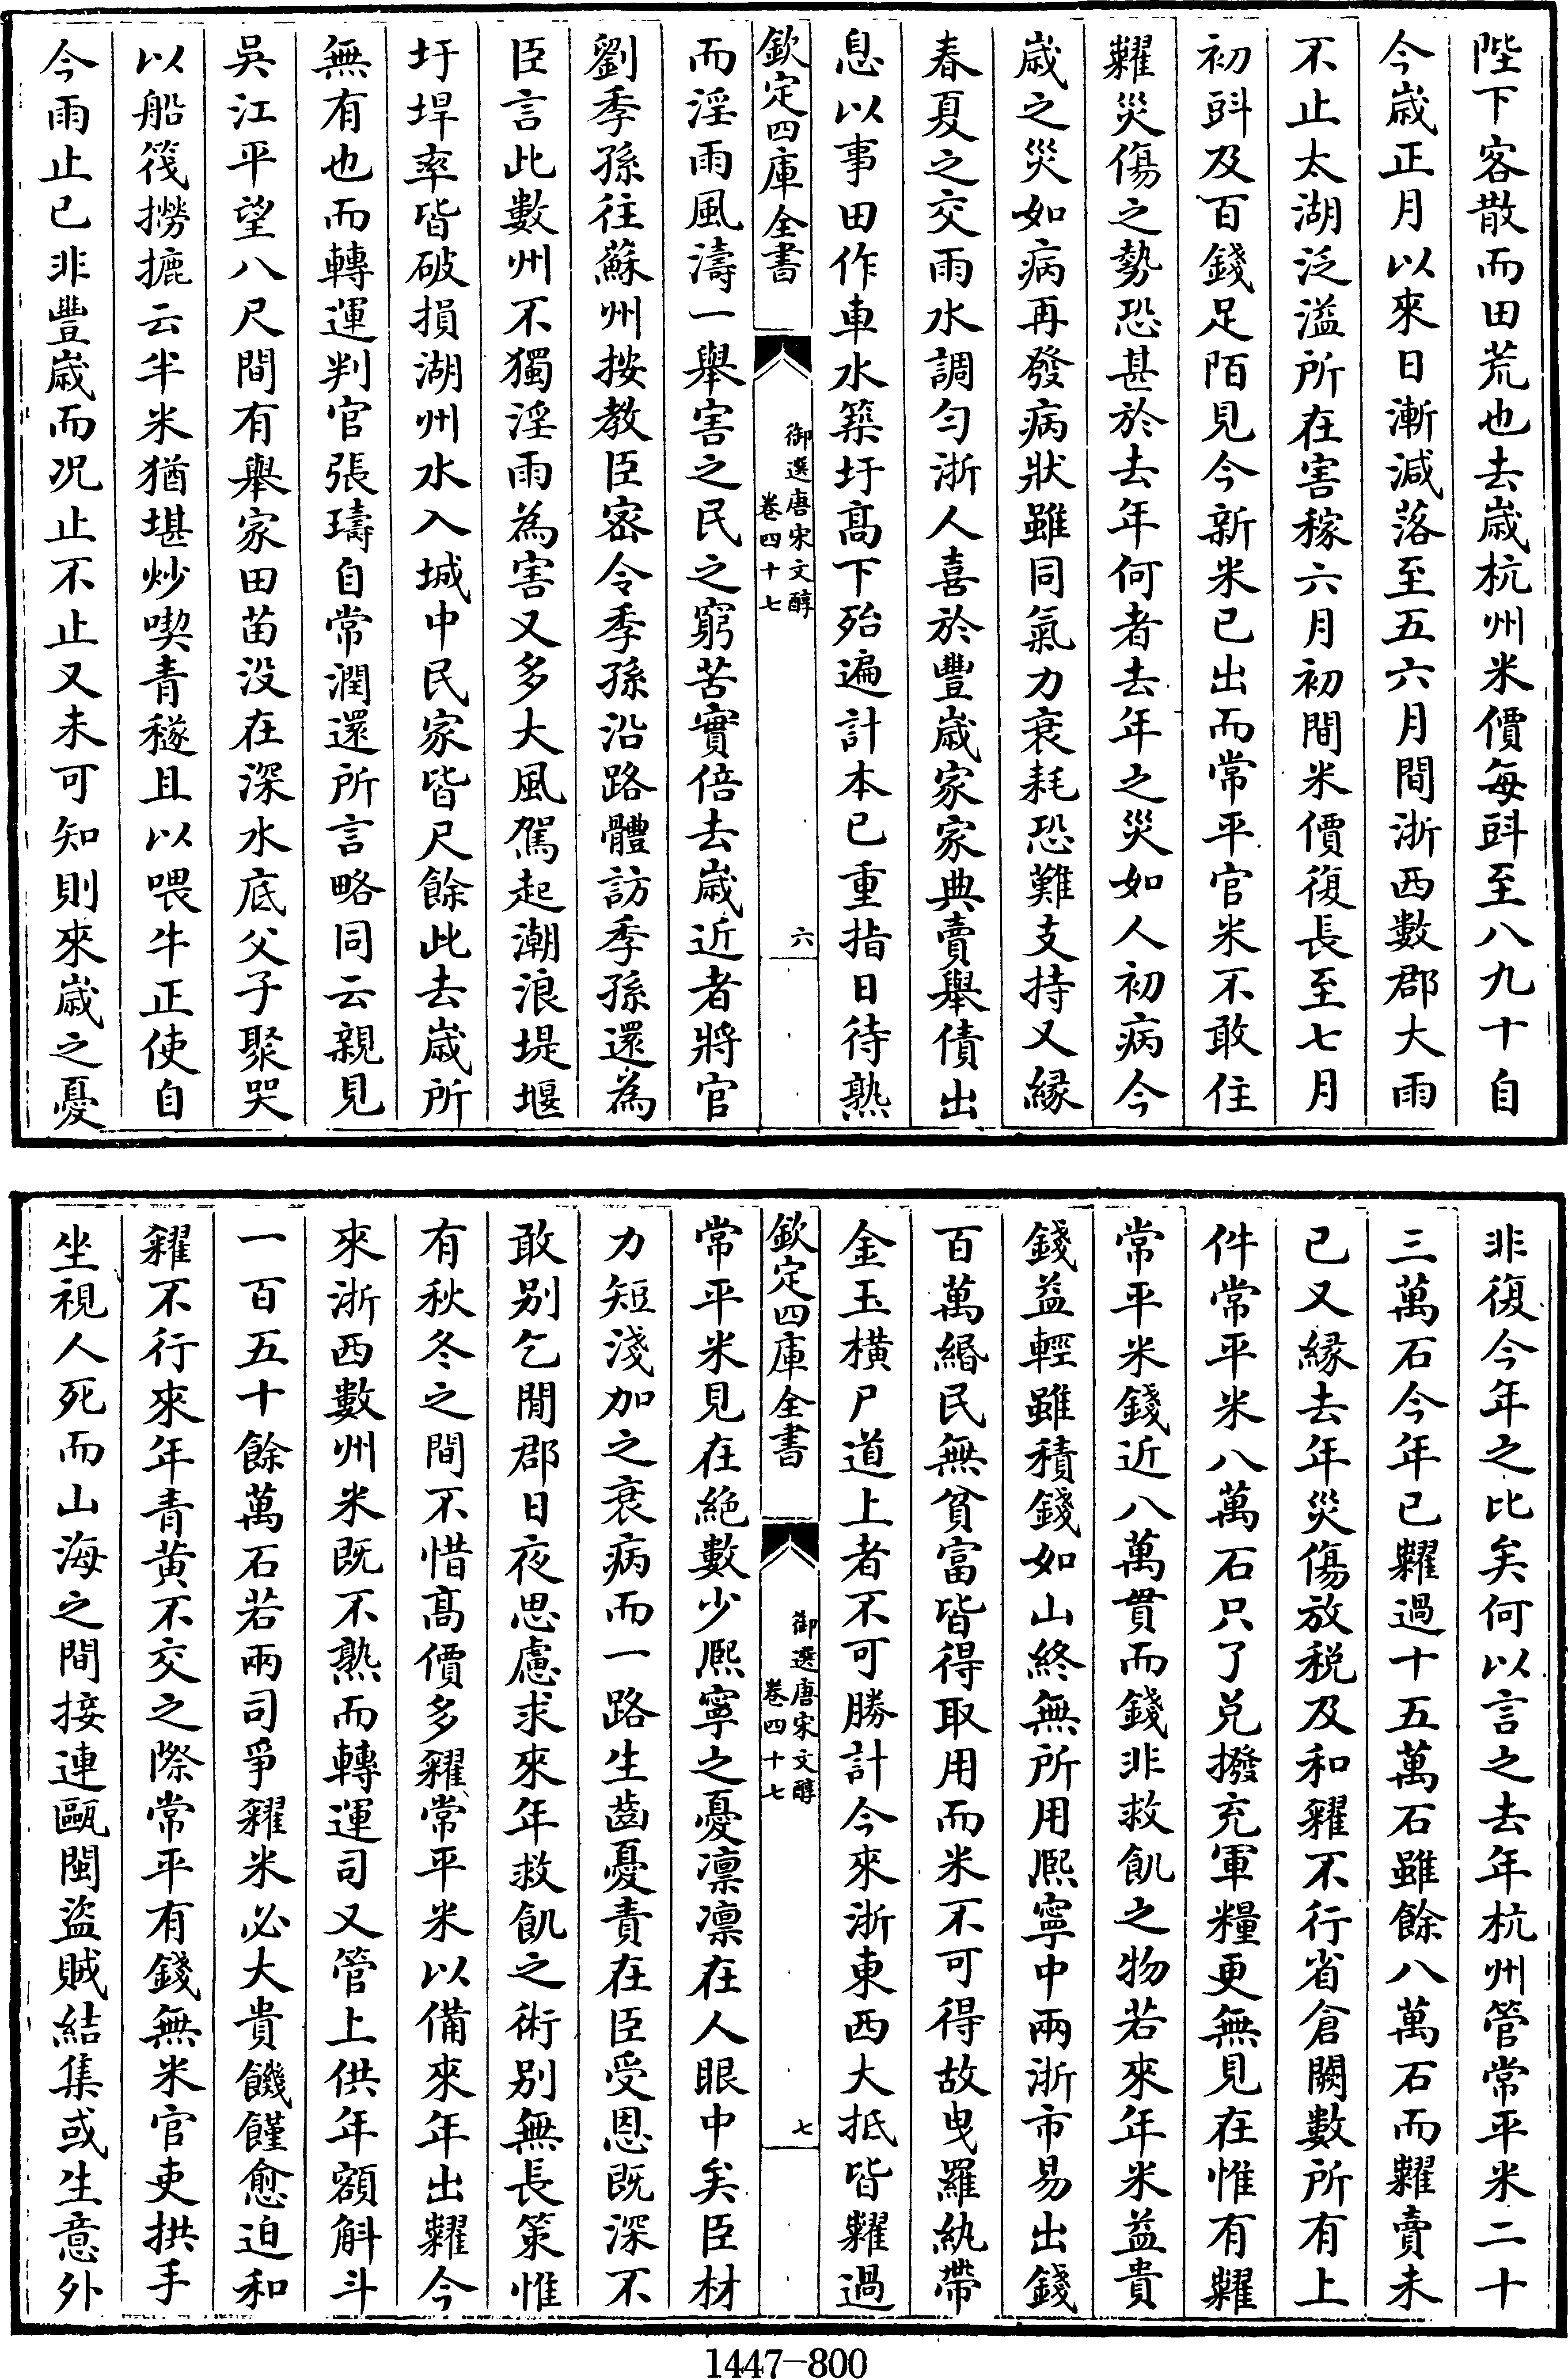 陛下客散而田荒也去歳杭州米價每㪷至八九十自
今歳正月以來日漸減落至五六月間浙西數郡大雨
不止太湖泛溢所在害稼六月初間米價復長至七月
初㪷及百錢足陌見今新米已出而常平官米不敢住
糶災傷之勢恐甚於去年何者去年之災如人初病今
歳之災如病再發病狀雖同氣力衰耗恐難支持又緣
春夏之交雨水調勻浙人喜於豐歳家家典賣舉債出
息以事田作車水築圩髙下殆遍計本已重指日待熟
欽定四庫全書
御選唐宋文醇
卷四十七
六
而淫雨風濤一舉害之民之窮苦實倍去歳近者將官
劉季孫往蘇州按教臣宻令季孫沿路體訪季孫還為
臣言此數州不獨淫雨為害又多大風駕起潮浪堤堰
圩垾率皆破損湖州水入城中民家皆尺餘此去歳所
無有也而轉運判官張璹自常潤還所言略同云親見
吳江平望八尺間有舉家田苗没在深水底父子聚哭
以船筏撈摝云半米猶堪炒喫青穟且以喂牛正使自
今雨止已非豐歳而况止不止又未可知則來歳之憂
非復今年之比矣何以言之去年杭州管常平米二十
三萬石今年已糶過十五萬石雖餘八萬石而糶賣未
已又緣去年災傷放税及和糴不行省倉闕數所有上
件常平米八萬石只了兑撥充軍糧更無見在惟有糶
常平米錢近八萬貫而錢非救飢之物若來年米益貴
錢益輕雖積錢如山終無所用熈寧中兩浙市易出錢
百萬緡民無貧富皆得取用而米不可得故曳羅紈帶
金玉横尸道上者不可勝計今來浙東西大抵皆糶過
欽定四庫全書
御選唐宋文醇
卷四十七
七
常平米見在絶數少熈寧之憂凛凛在人眼中矣臣材
力短淺加之衰病而一路生齒憂責在臣受恩既深不
敢别乞閒郡日夜思慮求來年救飢之術别無長策惟
有秋冬之間不惜髙價多糴常平米以備來年出糶今
來浙西數州米既不熟而轉運司又管上供年額斛斗
一百五十餘萬石若兩司爭糴米必大貴饑饉愈迫和
糴不行來年青黄不交之際常平有錢無米官吏拱手
坐視人死而山海之間接連甌閩盜賊結集或生意外
1447-800